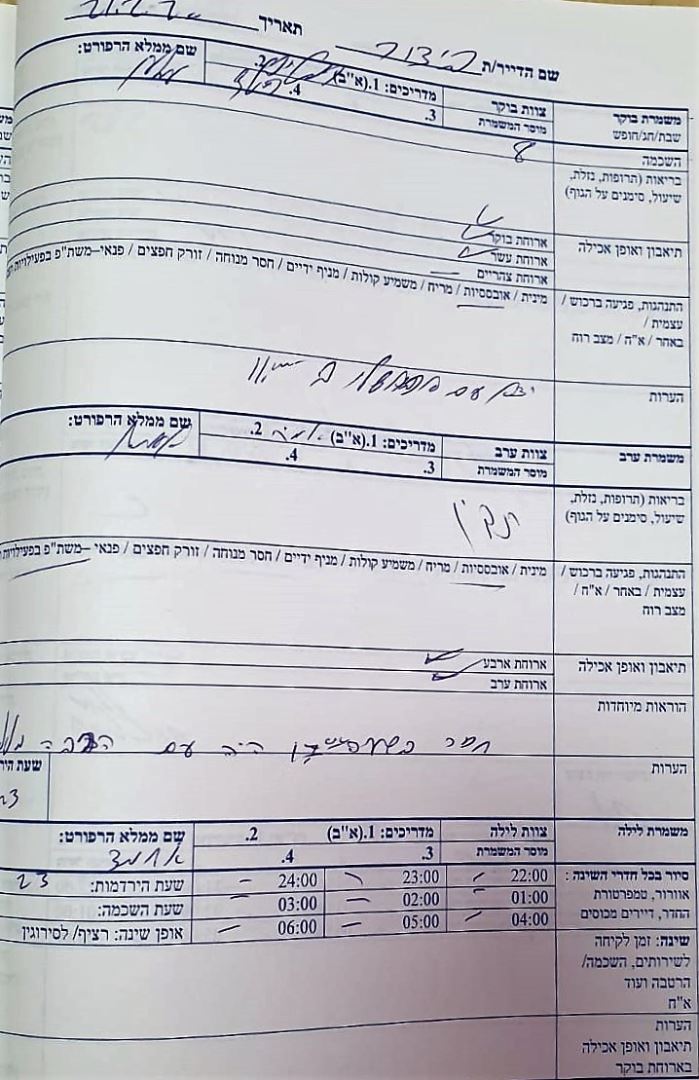 תאריך
שם הדייר/ת
משמרת בוקר
שבת/חג/חופש
צוות בוקר
מוסר המשמרת
מדריכים: 1.(א"ב) 2.
3. 4.
שם ממלא הרפורט:
השכמה
8
בריאות (תרופות, נזלת,
שיעול, סימנים על הגוף)
תיאבון ואופן אכילה
ארוחת בוקר
ארוחת עשר
ארוחת צהריים
התנהגות, פגיעה ברכוש /
עצמית /
באחר / א"ה / מצב רוח
מינית / אובססיות / מריח / משמיע קולות / מניף ידיים / חסר מנוחה / זורק חפצים / פנאי–משת"פ בפעילויות
הערות
יצא עם
משמרת ערב
צוות ערב
מוסר המשמרת
מדריכים: 1.(א"ב) 2.
3. 4.
שם ממלא הרפורט:
בריאות (תרופות, נזלת,
שיעול, סימנים על הגוף)
תקין
התנהגות, פגיעה ברכוש /
עצמית / באחר / א"ה /
מצב רוח
מינית / אובססיות / מריח / משמיע קולות / מניף ידיים / חסר מנוחה / זורק חפצים / פנאי –משת"פ בפעילויות
תיאבון ואופן אכילה
ארוחת ארבע
ארוחת ערב
הוראות מיוחדות
חסר היה עם
הערות
שעת
23
משמרת לילה
צוות לילה
מוסר המשמרת
מדריכים: 1.(א"ב) 2.
3. 4.
שם ממלא הרפורט:
אחמד
סיור בכל חדרי השינה :
אוורור, טמפרטורת
החדר, דיירים מכוסים
22:00 – 23:00 – 24:00 – שעת הירדמות: 23
01:00 – 02:00 – 03:00 – שעת השכמה:
04:00 – 05:00 – 06:00 – אופן שינה: רציף/ לסירוגין
שינה: זמן לקיחה
לשירותים, השכמה/
הרטבה ועוד
א"ח
הערות
תיאבון ואופן אכילה
בארוחת בוקר